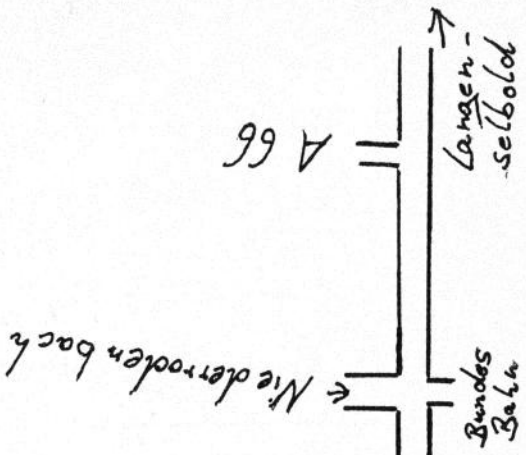 Langen-
-selbold
A 66
Niederrodenbach
Bundes
Bahn